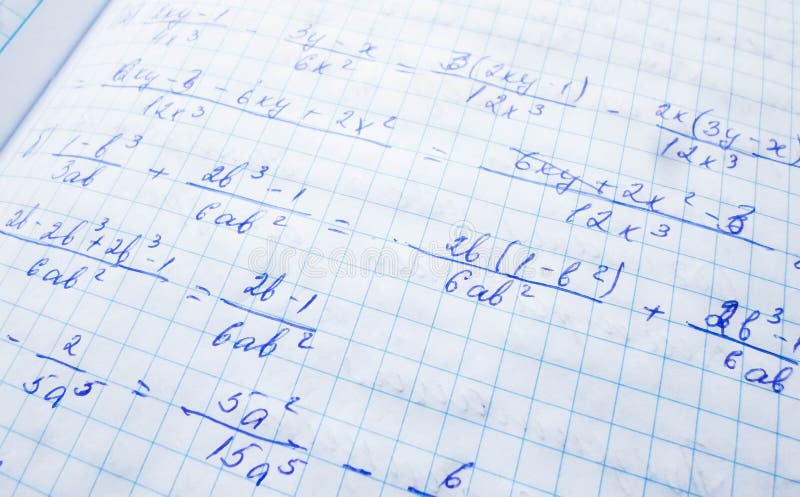 2xy-1/4x³ - 3y-x/6x² = 3(2xy-1)/12x³ - 2x(3y-x)/12x³
= 6xy-3-6xy+2x²/12x³ = 6xy+2x²-3/12x³
б) 1-b³/3ab + 2b³-1/6ab² = 2b(1-b²)/6ab² + 2b³-1/6ab
2b-2b³+2b³-1/6ab² = 2b-1/6ab²
- 2/5a⁵ = 5a²/15a⁵ - 6
dreamstime